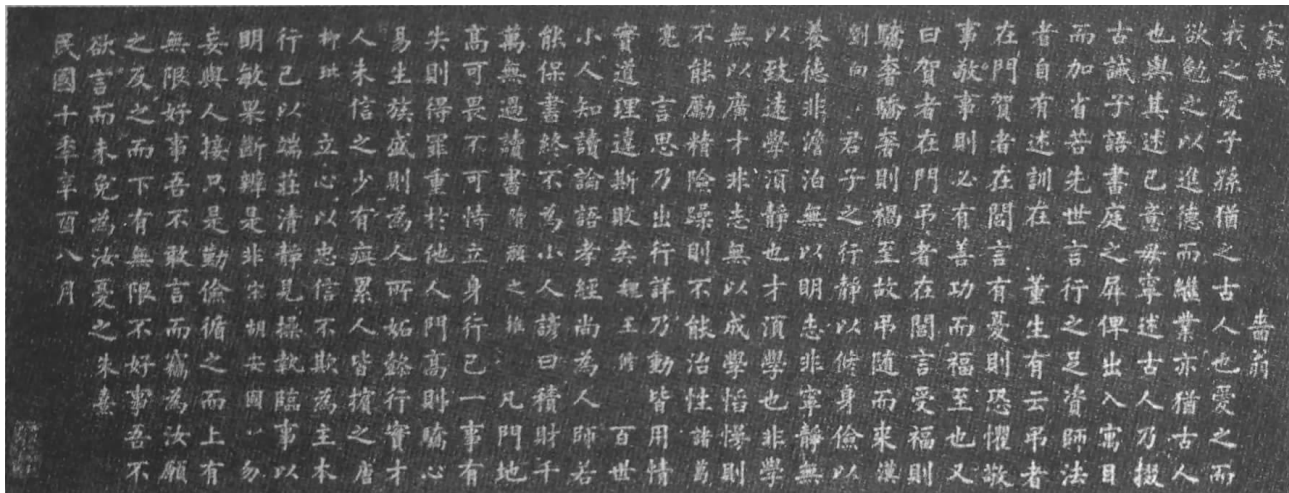 家誡 嗇翁
我之愛子孫猶之古人也愛之而
欲勉之以進德而繼業亦猶古人
也與其述己意毋寧述古人乃掇
古誡子語書庭之屏俾出入寓目
而加省若先世言行之足資師法
者自有述訓在 董生有云弔者
在門賀者在閭言有憂則恐懼敬
事敬事則必有善功而福至也又
曰賀者在門弔者在閭言受福則
驕奢驕奢則禍至故弔隨而來漢
劉向 君子之行靜以修身儉以
養德非澹泊無以明志非寧靜無
以致遠學須靜也才須學也非學
無以廣才非志無以成學慆慢則
不能勵精險躁則不能治性諸葛
亮 言思乃出行詳乃動皆用情
實道理違斯敗矣魏王脩 百世
小人知讀論語孝經尚為人師若
能保書終不為小人諺曰積財千
萬無過讀書隋顏之推 凡門地
高可畏不可恃立身行己一事有
失則得罪重於他人門高則驕心
易生族盛則為人所妬懿行實才
人未信之少有疵累人皆摭之唐
柳玭 立心以忠信不欺為主本
行己以端莊清靜見操執臨事以
明敏果斷辨是非宋胡安國 勿
妄與人接只是勤儉循之而上有
無限好事吾不敢言而竊為汝願
之反之而下有無限不好事吾不
欲言而未免為汝憂之朱熹
民國十秊辛酉八月